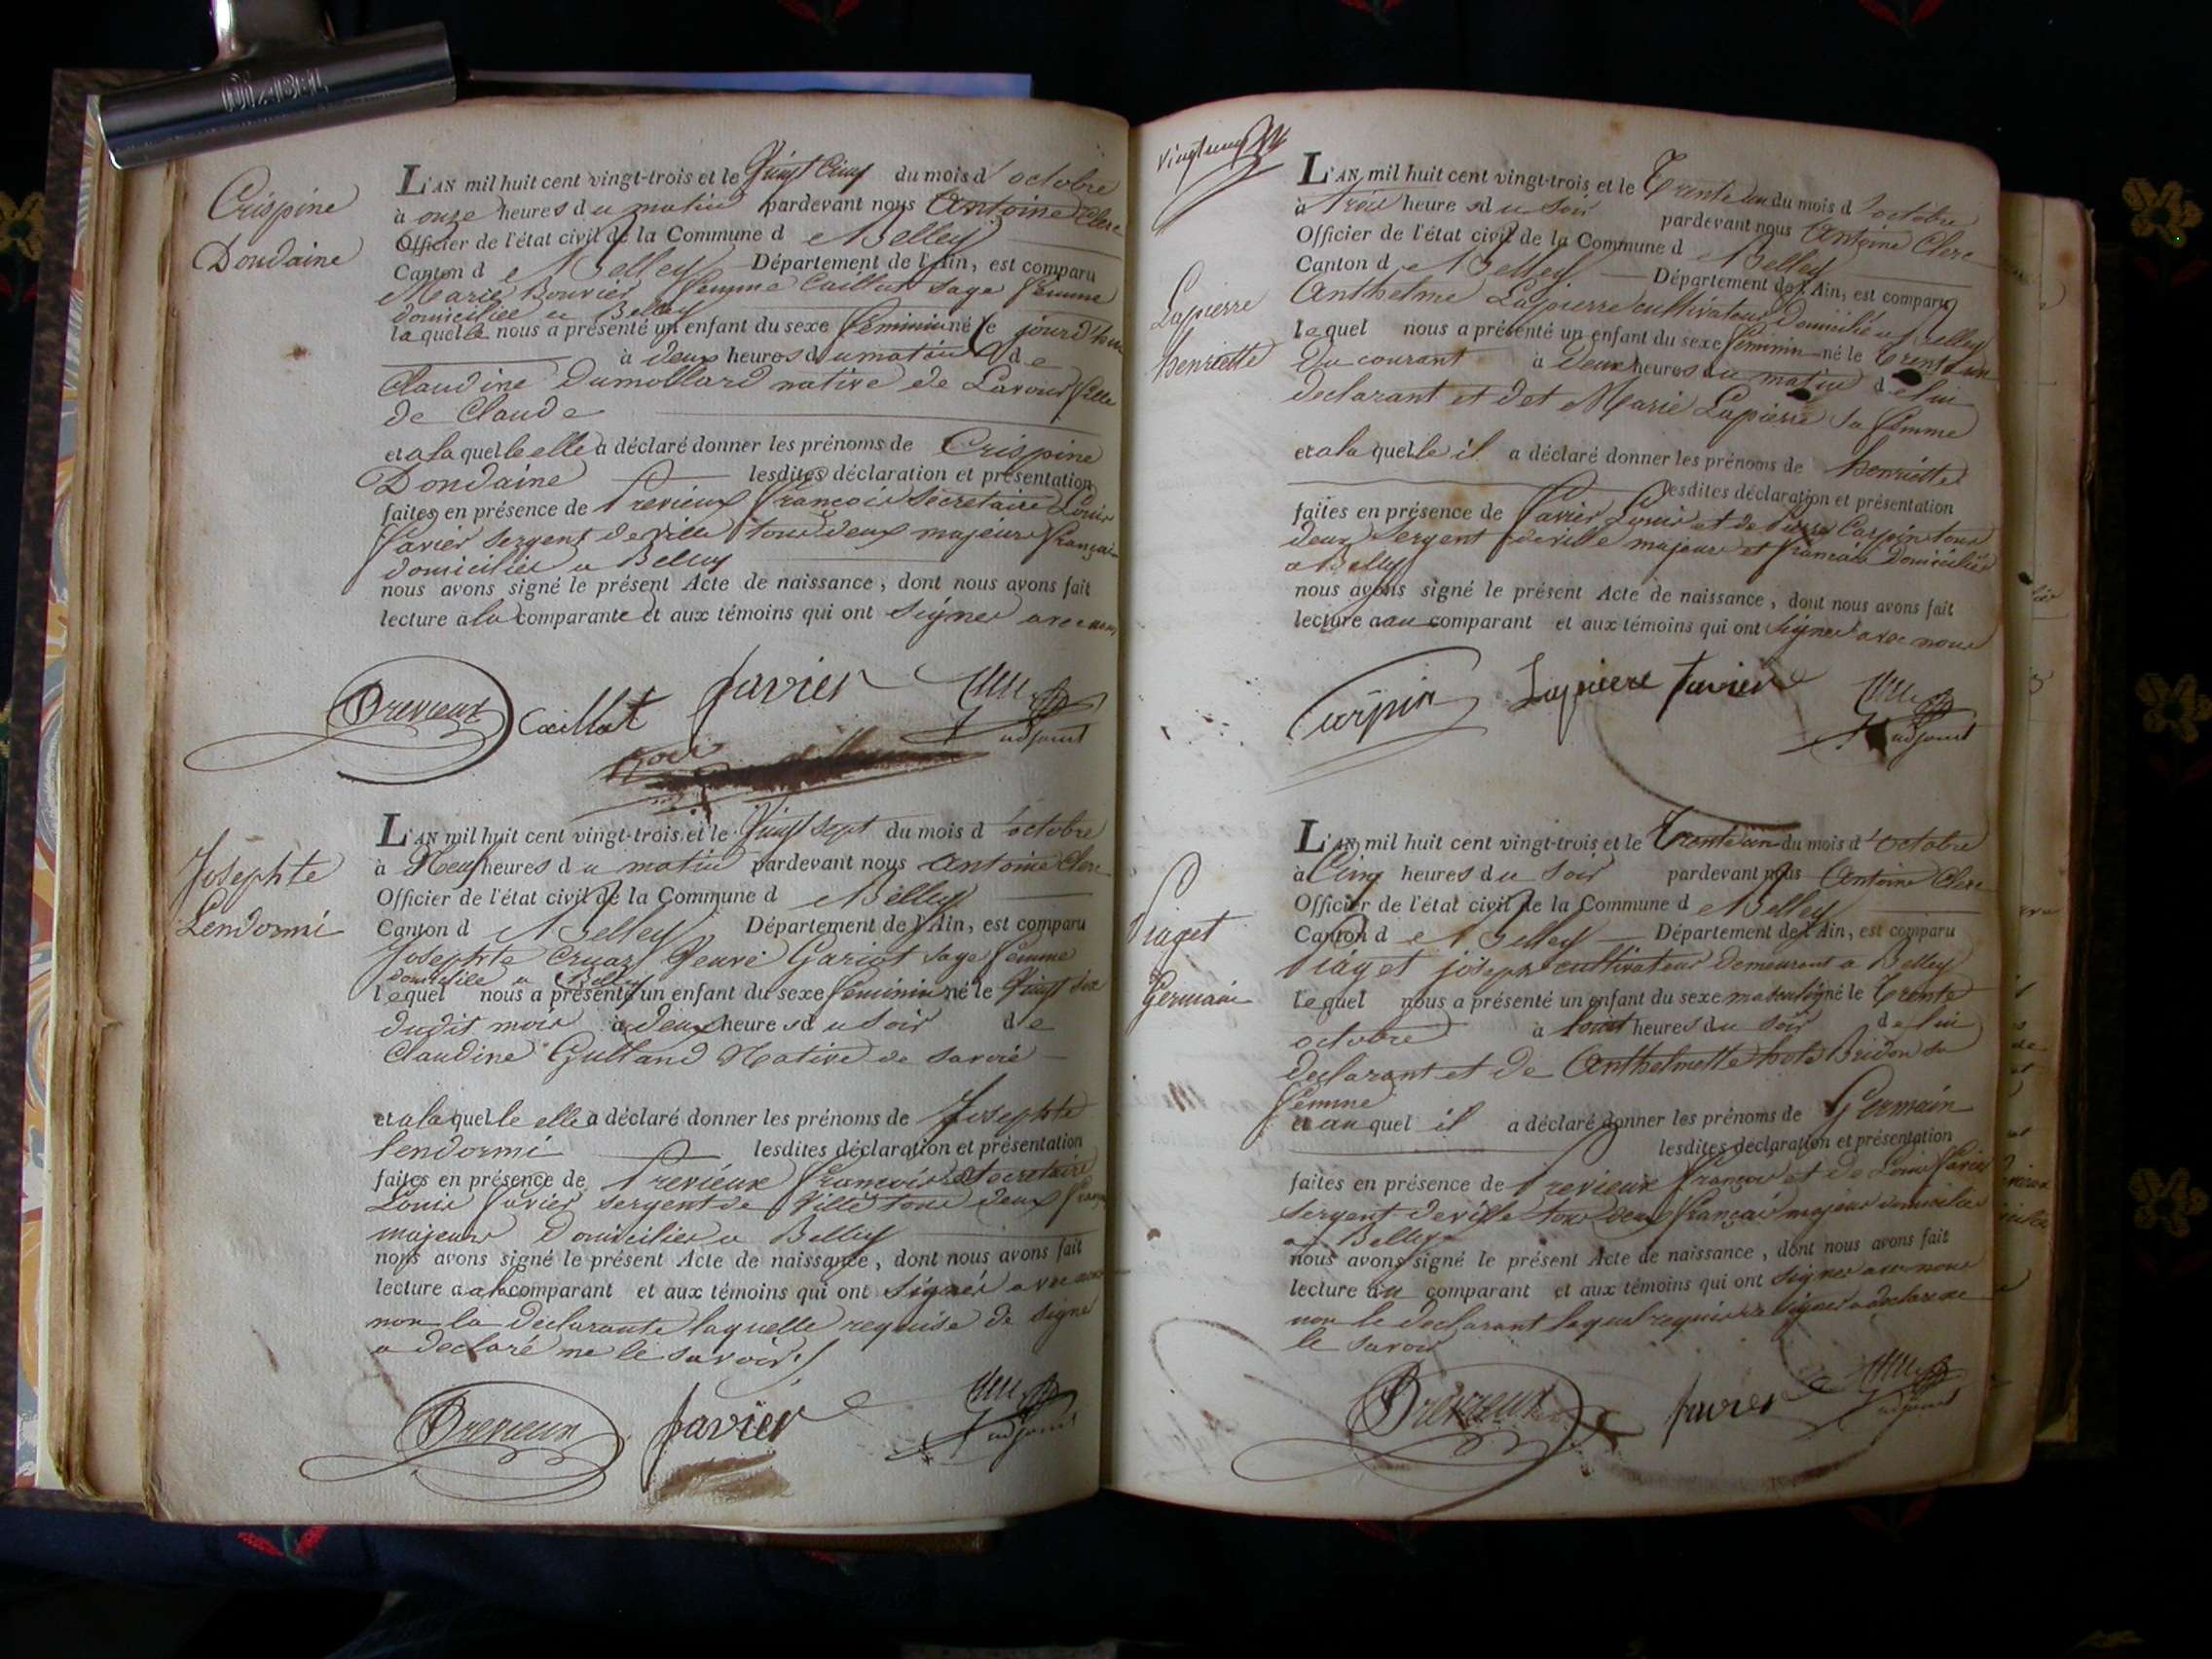 DIABEL
Crispine
Dondaine
L'AN mil huit cent vingt-trois et le Vingt Cinq du mois d'octobre
à onze heures du matin pardevant nous Antoine Clerc
Officier de l'état civil de la Commune de Belley
Canton de Belley Département de l'Ain, est comparu
Marie Bouvier femme Caillat sage femme
domiciliée a Belley
laquelle nous a présenté un enfant du sexe féminin né le jourd'hui
à deux heures du matin de
Claudine Dumollard native de Lavour fille
de Claude
et a laquelle elle a déclaré donner les prénoms de Crispine
Dondaine lesdites déclaration et présentation
faites en présence de Previeux François Secretaire Louis
Favier sergent de ville tous deux majeurs français
domiciliés a Belley
nous avons signé le présent Acte de naissance, dont nous avons fait
lecture a la comparante et aux témoins qui ont signer avec nous
Previeux Caillat favier
adjoint
Josephte
Lendormi
L'AN mil huit cent vingt-trois et le Vingt sept du mois d'octobre
à Neuf heures du matin pardevant nous Antoine Clerc
Officier de l'état civil de la Commune de Belley
Canton de Belley Département de l'Ain, est comparu
Josephte Cruaz Veuve Gariot sage femme
domicilée a Belley
lequel nous a présenté un enfant du sexe féminin né le Vingt six
dudit mois à deux heures du soir de
Claudine Gulland Native de Savoie
et a laquelle elle a déclaré donner les prénoms de Josephte
lendormi lesdites déclaration et présentation
faites en présence de Previeux François secretaire
Louis favier sergent de Ville tous deux
majeurs Domiciliés a Belley
nous avons signé le présent Acte de naissance, dont nous avons fait
lecture a la comparant et aux témoins qui ont signés avec nous
non la declarante laquelle requise de signer
a declaré ne le savoir
Previeux favier
adjoint
Lapierre
henriette
L'AN mil huit cent vingt-trois et le Trente un du mois d'octobre
à trois heures du soir pardevant nous Antoine Clerc
Officier de l'état civil de la Commune de Belley
Canton de Belley Département de l'Ain, est comparu
Anthelme Lapierre cultivateur domicilié a Belley
lequel nous a présenté un enfant du sexe féminin né le trente un
du courant à deux heures du matin de lui
declarant et det Marie Lapierre sa femme
et a laquelle il a déclaré donner les prénoms de henriette
lesdites déclaration et présentation
faites en présence de favier Louis et de Pierre Carpin tous
deux sergent de ville majeurs et français Domiciliés
a Belley
nous avons signé le présent Acte de naissance, dont nous avons fait
lecture a au comparant et aux témoins qui ont signer avec nous
Carpin Lapierre favier
adjoint
Piaget
Germain
L'AN mil huit cent vingt-trois et le Trente un du mois d'octobre
à Cinq heures du soir pardevant nous Antoine Clerc
Officier de l'état civil de la Commune de Belley
Canton de Belley Département de l'Ain, est comparu
Piaget joseph cultivateur demeurant a Belley
lequel nous a présenté un enfant du sexe masculin né le trente
octobre à heures du soir de lui
declarant et de Anthelmette Bridon sa
femme
et au quel il a déclaré donner les prénoms de Germain
lesdites déclaration et présentation
faites en présence de Previeux françois et de Louis favier
sergent de ville tous deux français majeurs domiciliés
a Belley
nous avons signé le présent Acte de naissance, dont nous avons fait
lecture au comparant et aux témoins qui ont signer avec nous
non le declarant lequel requis de signer a declare ne
le savoir
Previeux favier
adjoint